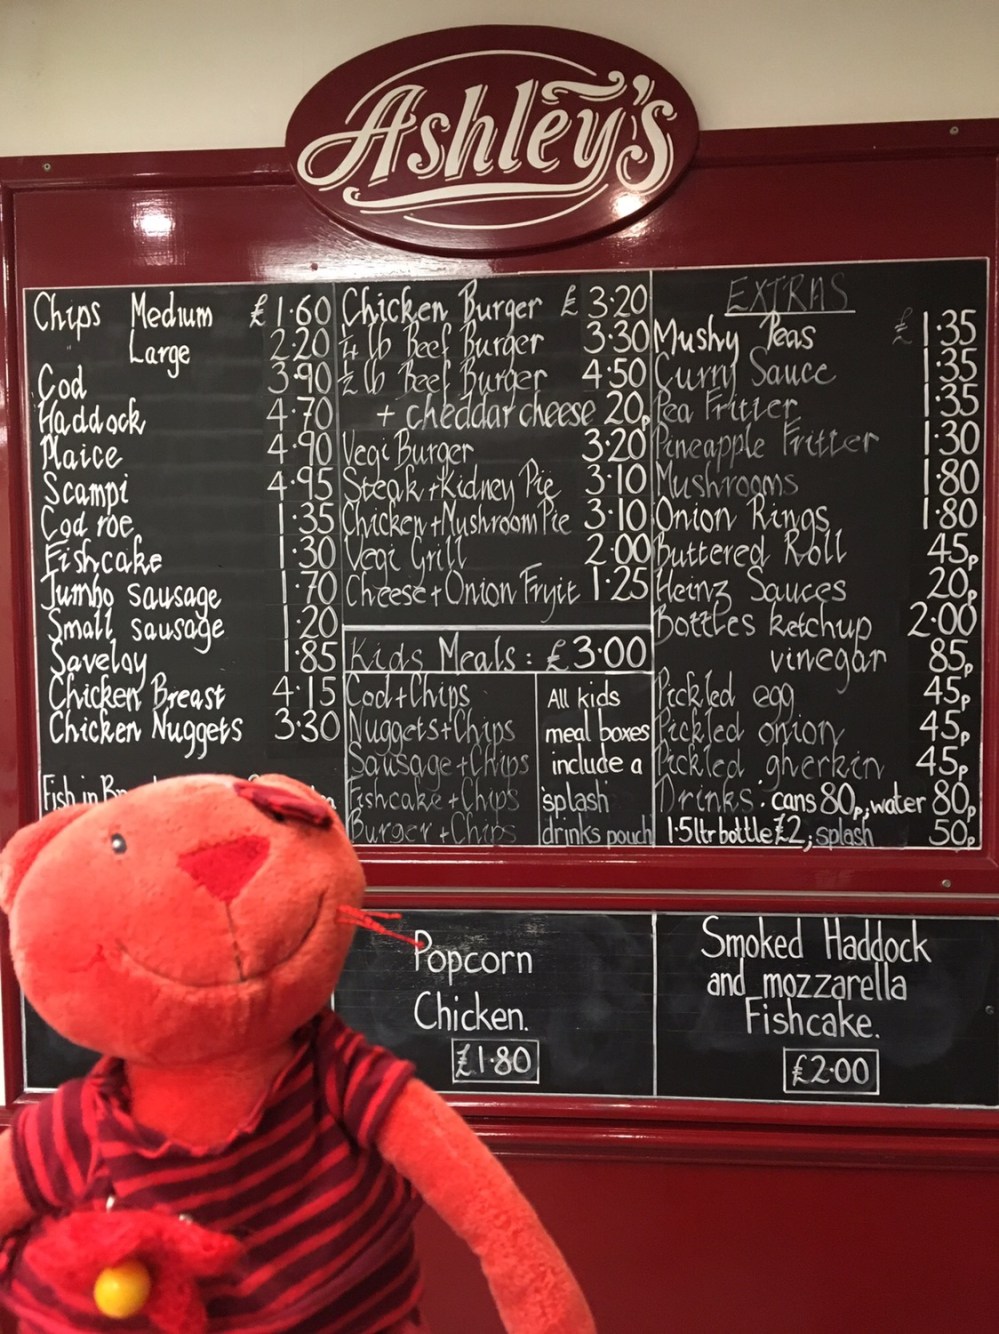 Ashley's
Chips Medium £1.60
Large 2.20
Cod 3.90
Haddock 4.70
Plaice 4.90
Scampi 4.95
Cod roe 1.35
Fishcake 1.30
Jumbo sausage 1.70
Small sausage 1.20
Saveloy 1.85
Chicken Breast 4.15
Chicken Nuggets 3.30
Fish in
Chicken Burger £3.20
¼ lb Beef Burger 3.30
½ lb Beef Burger 4.50
+ cheddar cheese 20p
Vegi Burger 3.20
Steak + Kidney Pie 3.10
Chicken + Mushroom Pie 3.10
Vegi Grill 2.00
Cheese + Onion Fryit 1.25
Kids Meals: £3.00
Cod + Chips
Nuggets + Chips
Sausage + Chips
Fishcake + Chips
Burger + Chips
All kids
meal boxes
include a
splash
drinks pouch
EXTRAS
Mushy Peas £1.35
Curry Sauce 1.35
Pea Fritter 1.35
Pineapple Fritter 1.30
Mushrooms 1.80
Onion Rings 1.80
Buttered Roll 45p
Heinz Sauces 20p
Bottles ketchup 2.00
vinegar 85p
Pickled egg 45p
Pickled onion 45p
Pickled gherkin 45p
Drinks: cans 80p, water 80p
1.5ltr bottle £2; splash 50p
Popcorn
Chicken.
£1.80
Smoked Haddock
and mozzarella
Fishcake.
£2.00